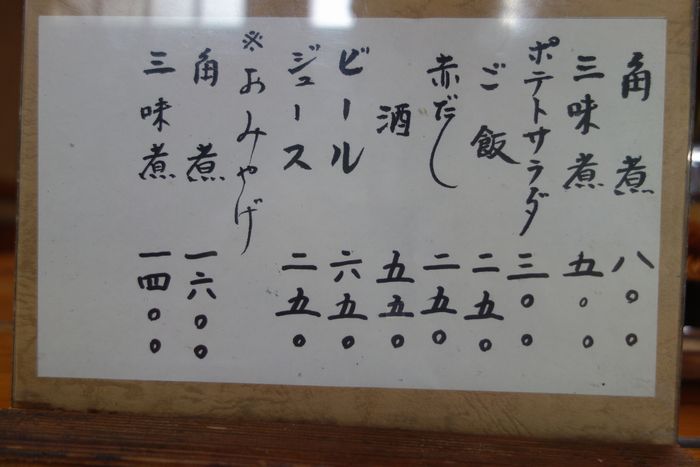 角煮 八〇〇
三味煮 五〇〇
ポテトサラダ 三〇〇
ご飯 二五〇
赤だし 二五〇
酒 五五〇
ビール 六五〇
ジュース 二五〇
※おみやげ
角煮 一六〇〇
三味煮 一四〇〇